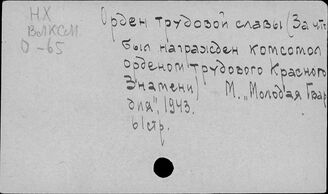 НХ
ВЛКСМ.
О-65
Орден трудовой славы (За что
был награжден комсомол
орденом Трудового Красного
Знамени) М. „Молодая Гвар
дия", 1943.
61стр.